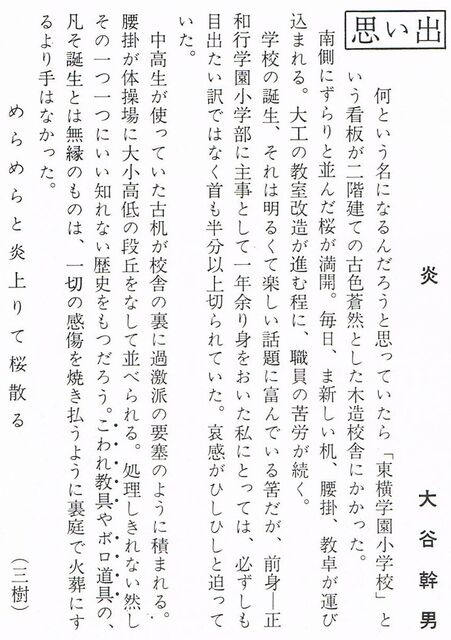 思い出
炎
大谷幹男
何という名になるんだろうと思っていたら「東横学園小学校」と
いう看板が二階建ての古色蒼然とした木造校舎にかかった。
南側にずらりと並んだ桜が満開。毎日、ま新しい机、腰掛、教卓が運び
込まれる。大工の教室改造が進む程に、職員の苦労が続く。
学校の誕生、それは明るくて楽しい話題に富んでいる筈だが、前身―正
和行学園小学部に主事として一年余り身をおいた私にとっては、必ずしも
目出たい訳ではなく首も半分以上切られていた。哀感がひしひしと迫って
いた。
中高生が使っていた古机が校舎の裏に過激派の要塞のように積まれる。
腰掛が体操場に大小高低の段丘をなして並べられる。処理しきれない然し
その一つ一つにいい知れない歴史をもつだろう。こわれ教具やボロ道具の、
凡そ誕生とは無縁のものは、一切の感傷を焼き払うように裏庭で火葬にす
るより手はなかった。
めらめらと炎上りて桜散る
（三樹）